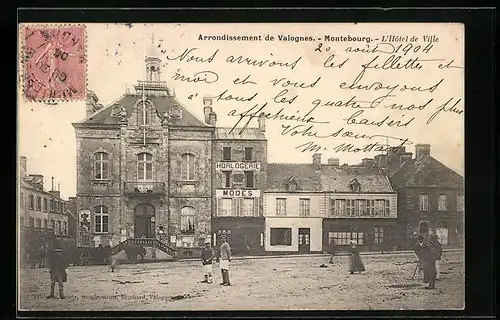 Arrondissement de Valognes. - Montebourg. - L'Hôtel de Ville
20 août 1904
Nous arrivons les fillettes et
moi et vous envoyons
à tous les quatre nos plus
affectueux baisers
Votre sœur
M.
HORLOGERIE
MODES